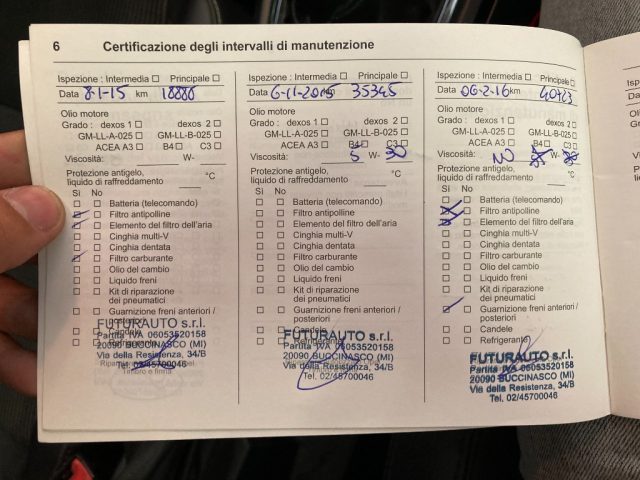 6 Certificazione degli intervalli di manutenzione
Ispezione : Intermedia Principale
Data 8-1-15 km 18880
Olio motore
Grado : dexos 1 dexos 2
GM-LL-A-025 GM-LL-B-025
ACEA A3 B4 C3
Viscosità: W-
Protezione antigelo,
liquido di raffreddamento °C
Sì No
Batteria (telecomando)
Filtro antipolline
Elemento del filtro dell'aria
Cinghia multi-V
Cinghia dentata
Filtro carburante
Olio del cambio
Liquido freni
Kit di riparazione
dei pneumatici
Guarnizione freni anteriori /
Candele
FUTURAUTO s.r.l.
Partita IVA 06053520158
20090 BUCCINASCO (MI)
Via della Resistenza, 34/B
Tel. 02/45700046
Timbro e firma
Ispezione : Intermedia Principale
Data 6-11-2015 km 35345
Olio motore
Grado : dexos 1 dexos 2
GM-LL-A-025 GM-LL-B-025
ACEA A3 B4 C3
Viscosità: 5 W- 30
Protezione antigelo,
liquido di raffreddamento °C
Sì No
Batteria (telecomando)
Filtro antipolline
Elemento del filtro dell'aria
Cinghia multi-V
Cinghia dentata
Filtro carburante
Olio del cambio
Liquido freni
Kit di riparazione
dei pneumatici
Guarnizione freni anteriori /
posteriori
Candele
Refrigerante
FUTURAUTO s.r.l.
Partita IVA 06053520158
20090 BUCCINASCO (MI)
Via della Resistenza, 34/B
Tel. 02/45700046
Ispezione : Intermedia Principale
Data 06-2-16 km 40723
Olio motore
Grado : dexos 1 dexos 2
GM-LL-A-025 GM-LL-B-025
ACEA A3 B4 C3
Viscosità: NO W-
Protezione antigelo,
liquido di raffreddamento °C
Sì No
Batteria (telecomando)
Filtro antipolline
Elemento del filtro dell'aria
Cinghia multi-V
Cinghia dentata
Filtro carburante
Olio del cambio
Liquido freni
Kit di riparazione
dei pneumatici
Guarnizione freni anteriori /
posteriori
Candele
Refrigerante
FUTURAUTO s.r.l.
Partita IVA 06053520158
20090 BUCCINASCO (MI)
Via della Resistenza, 34/B
Tel. 02/45700046
Data
Olio motore
Grado :